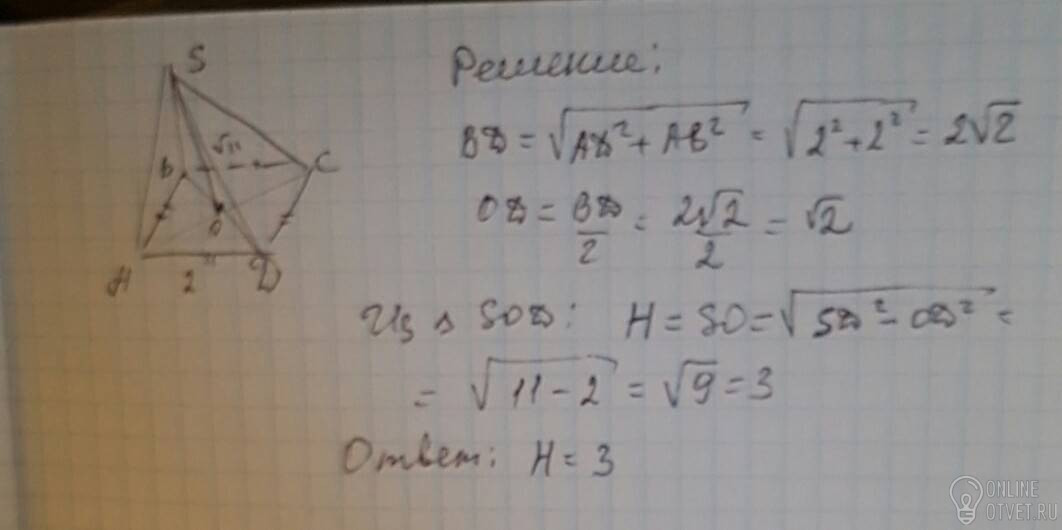 S
√11
B
C
O
A
2
D
Решение:
BD = √AD² + AB² = √2² + 2² = 2√2
OD = BD/2 = 2√2/2 = √2
Из Δ SOD: H = SO = √SD² - OD² =
= √11 - 2 = √9 = 3
Ответ: H = 3
ONLINE
OTVET.RU